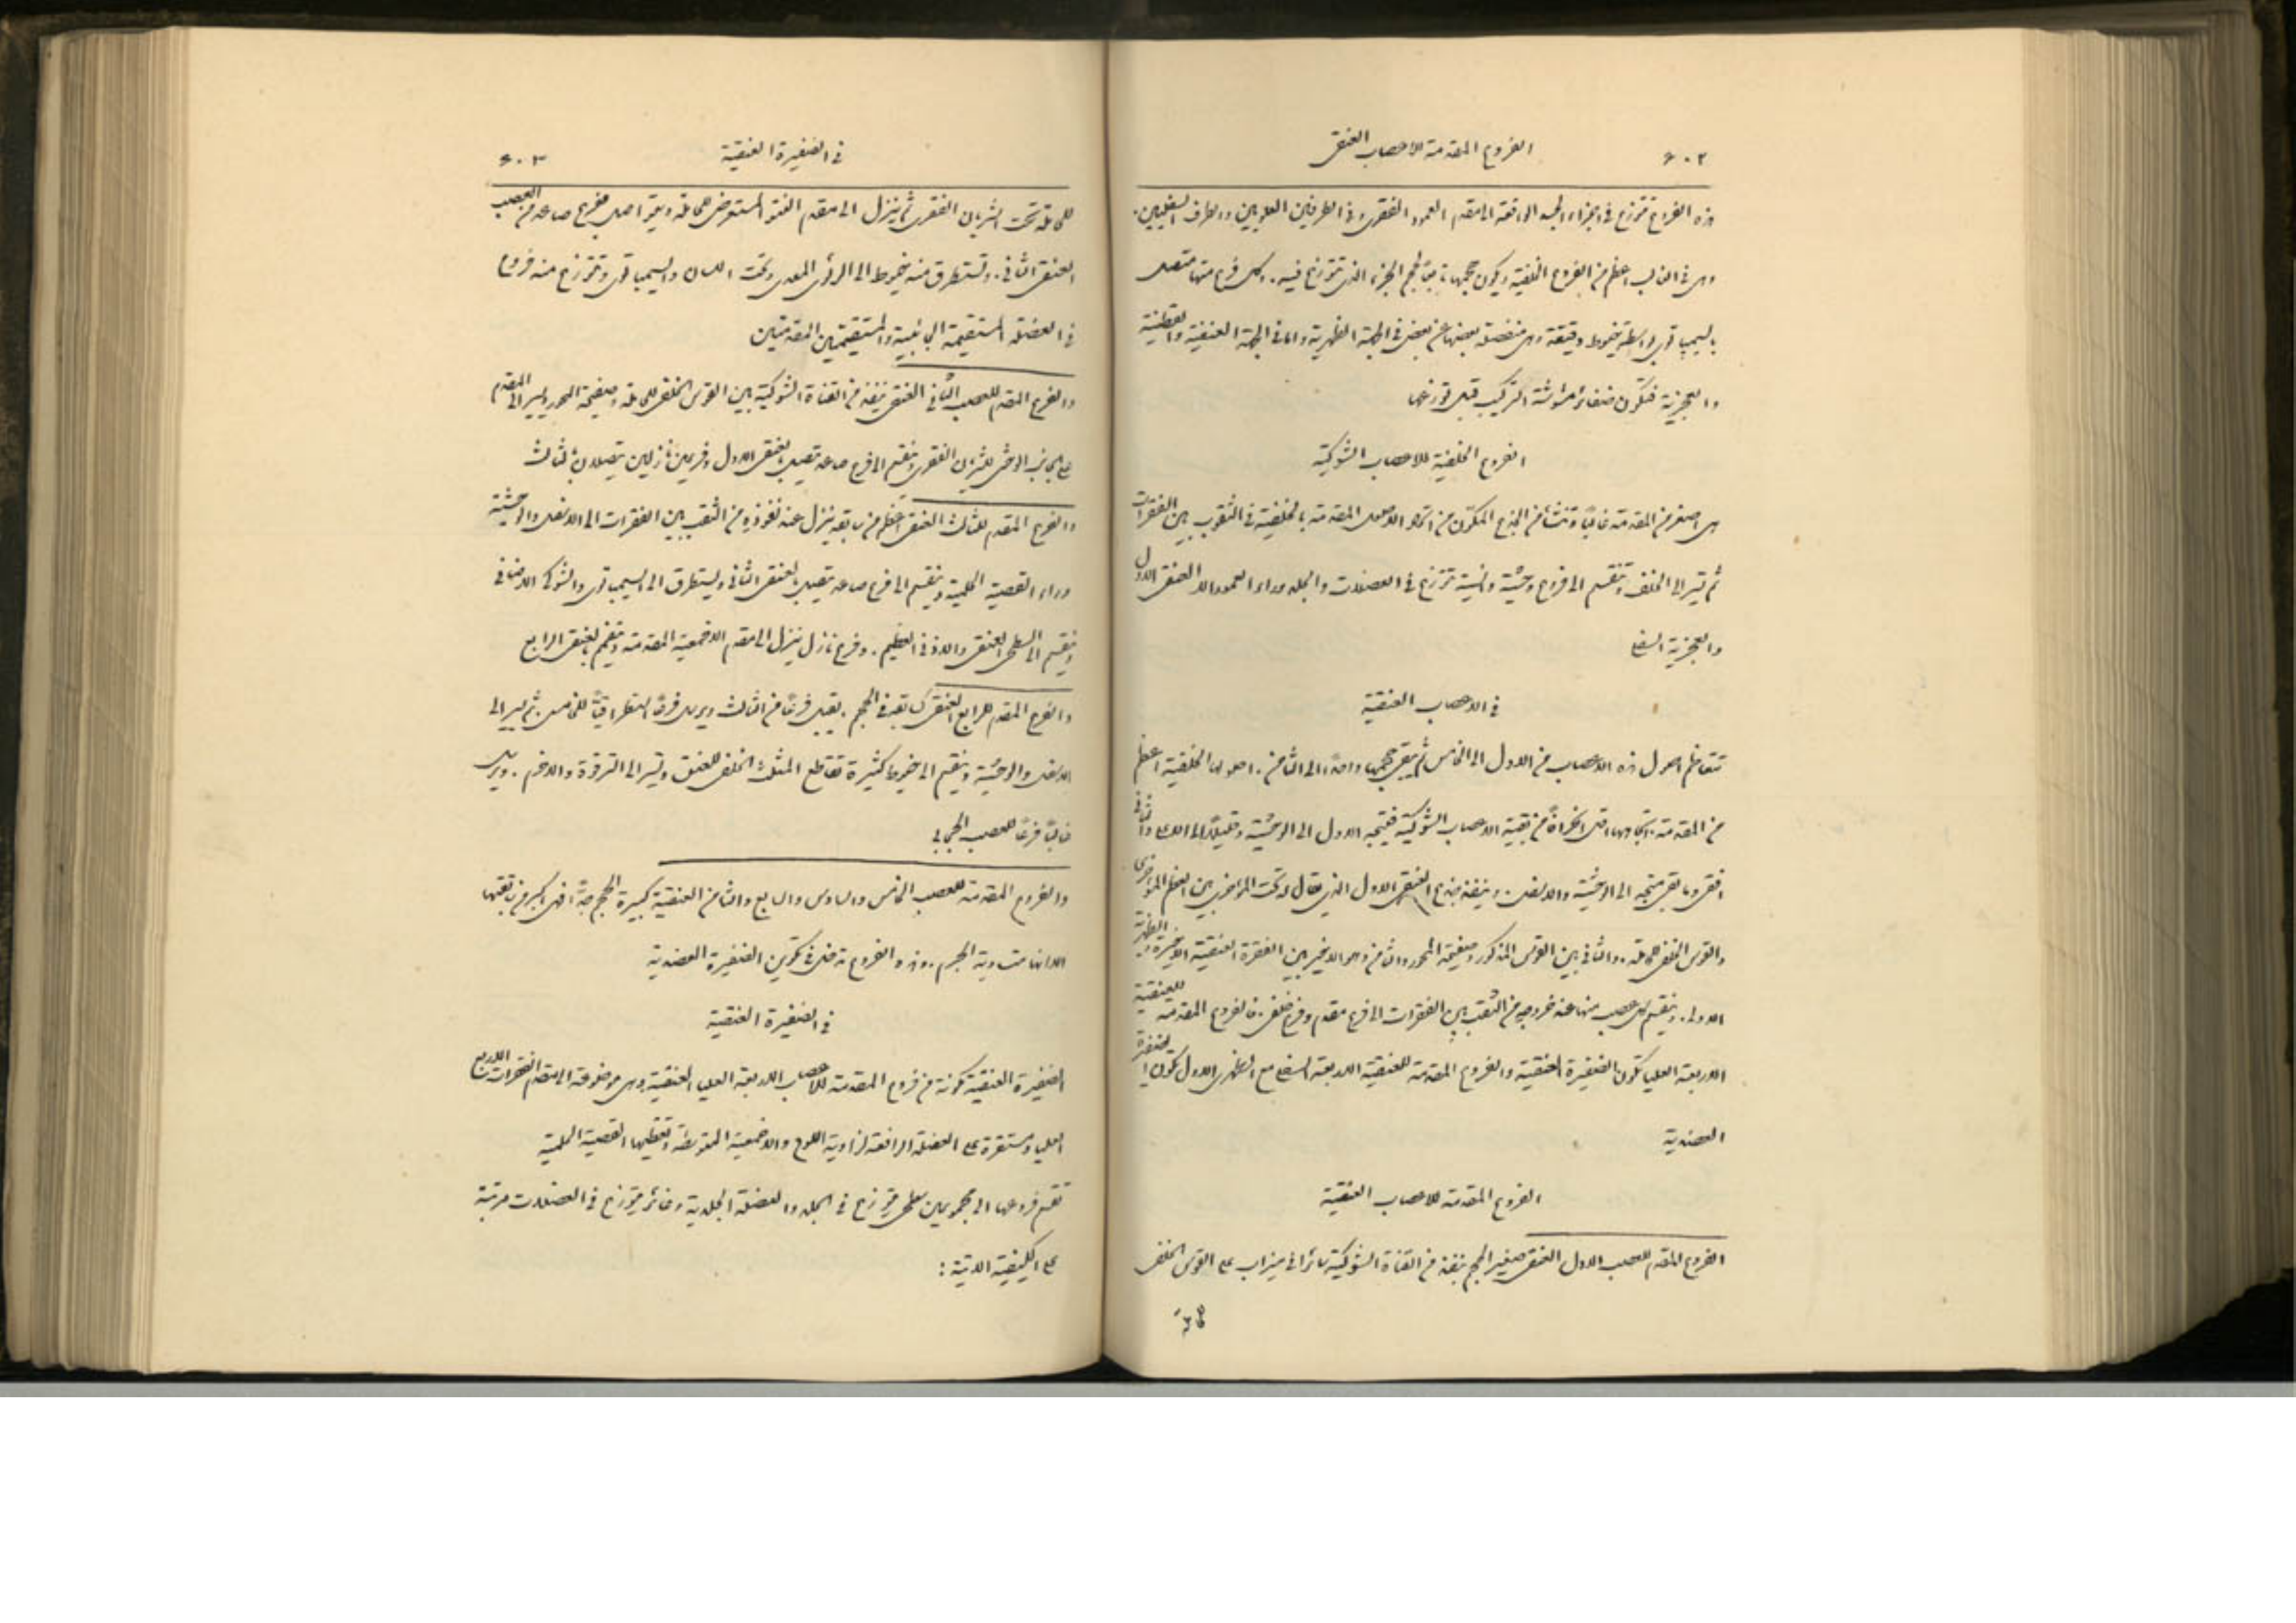 ٦٠٢
الفروع المقدمة للاعصاب العنقية
هذه الفروع تتوزع في اجزاء الجسد الواقعة الى مقدم العمود الفقري وفي الطرفين العلويين والطرفين السفليين.
وهي في الغالب اعظم من الفروع الخلفية ويكون حجمها تابعًا لحجم الجزء الذي تتوزع فيه. وكل فرع منها متصل
بالسيمپاتوي بواسطة خيوط دقيقة وهي منفصلة بعضها عن بعض في الجهة الظهرية واما في الجهة العنقية والقطنية
والعجزية فتكون ضفائر مشوشة التركيب قبل توزعها
الفروع الخلفية للاعصاب الشوكية
هي اصغر من المقدمة غالبًا وتنشأ من الجذع المكون من اتحاد الاصول المقدمة بالخلفية في الثقوب بين الفقرات
ثم تسير الى الخلف وتنقسم الى فروع وحشية وانسية تتوزع في العضلات والجلد وراء العمود الا العنقي الاول
والعجزية السفلى
في الاعصاب العنقية
تتعاظم اصول هذه الاعصاب من الاول الى الخامس ثم يبقى حجمها واحدًا الى الثامن. اصولها الخلفية اعظم
من المقدمة واتجاهها اقل انحرافًا من بقية الاعصاب الشوكية فيتجه الاول الى الوحشية وقليلًا الى الاعلى والثاني
افقي وما بقي متجه الى الوحشية والاسفل. وينفذ جذع العنقي الاول الذي يقال له تحت المؤخري بين العظم المؤخري
والقوس الخلفي للحاملة. والثاني بين القوس المذكور وصفيحة المحور والثامن وهو الاخير بين الفقرة العنقية الاخيرة والظهرية
الاولى. وينقسم كل عصب منها عند خروجه من الثقب بين الفقرات الى فرع مقدم وفرع خلفي. فالفروع المقدمة للعنقية
الاربعة العليا تكون الضفيرة العنقية والفروع المقدمة للعنقية الاربعة السفلى مع الظهري الاول تكون الضفيرة
العضدية
الفروع المقدمة للاعصاب العنقية
الفرع المقدم للعصب الاول العنقي صغير الحجم ينفذ من القناة الشوكية سائرًا في ميزاب على القوس الخلفي
في الضفيرة العنقية
٦٠٣
للحاملة تحت الشريان الفقري ثم ينزل الى مقدم النتو المستعرض للحاملة ويتواصل بفرع صاعد من العصب
العنقي الثاني. وتستطرق منه خيوط الى الرئوي المعدي وتحت اللسان والسيمپاتوي وتتوزع منه فروع
في العضلة المستقيمة الجانبية والمستقيمتين المقدمتين
والفرع المقدم للعصب الثاني العنقي ينفذ من القناة الشوكية بين القوس الخلفي للحاملة وصفيحة المحور ويسير الى المقدم
على الجانب الوحشي للشريان الفقري وينقسم الى فرع صاعد يتصل بالعنقي الاول وفرعين نازلين يتصلان بالثالث
والفرع المقدم للثالث العنقي اعظم من سابقه ينزل عند نفوذه من الثقب بين الفقرات الى الاسفل والوحشية
وراء القصية الحلمية وينقسم الى فرع صاعد يتصل بالعنقي الثاني ويستطرق الى السيمپاتوي والشوكي الاضافي
وينقسم الى السطحي العنقي والاذني العظيم. وفرع نازل ينزل الى مقدم الاخمعية المقدمة وينضم بالعنقي الرابع
والفرع المقدم للرابع العنقي كسابقه في الحجم. يقبل فرعًا من الثالث ويرسل فرعًا استطراقيًا للخامس. ثم يسير الى
الاسفل والوحشية وينقسم الى خيوط كثيرة تقاطع المثلث الخلفي للعنق وتسير الى الترقوة والاخرم. ويرسل
غالبًا فرعًا للعصب الحجابي
والفروع المقدمة للعصب الخامس والسادس والسابع والثامن العنقية كبيرة الحجم جدًّا فهي اكبر من سابقتها
الا انها متساوية الحجم. وهذه الفروع تدخل في تكوين الضفيرة العضدية
في الضفيرة العنقية
الضفيرة العنقية مكونة من فروع المقدمة للاعصاب الاربعة العليا العنقية وهي موضوعة الى مقدم الفقرات الاربع
العليا ومستقرة على العضلة الرافعة لزاوية اللوح والاخمعية المتوسطة وتغطيها القصية الحلمية
تقسم فروعها الى مجموعين سطحي يتوزع في الجلد والعضلة الجلدية وغائر يتوزع في العضلات مرتبة
على الكيفية الاتية: